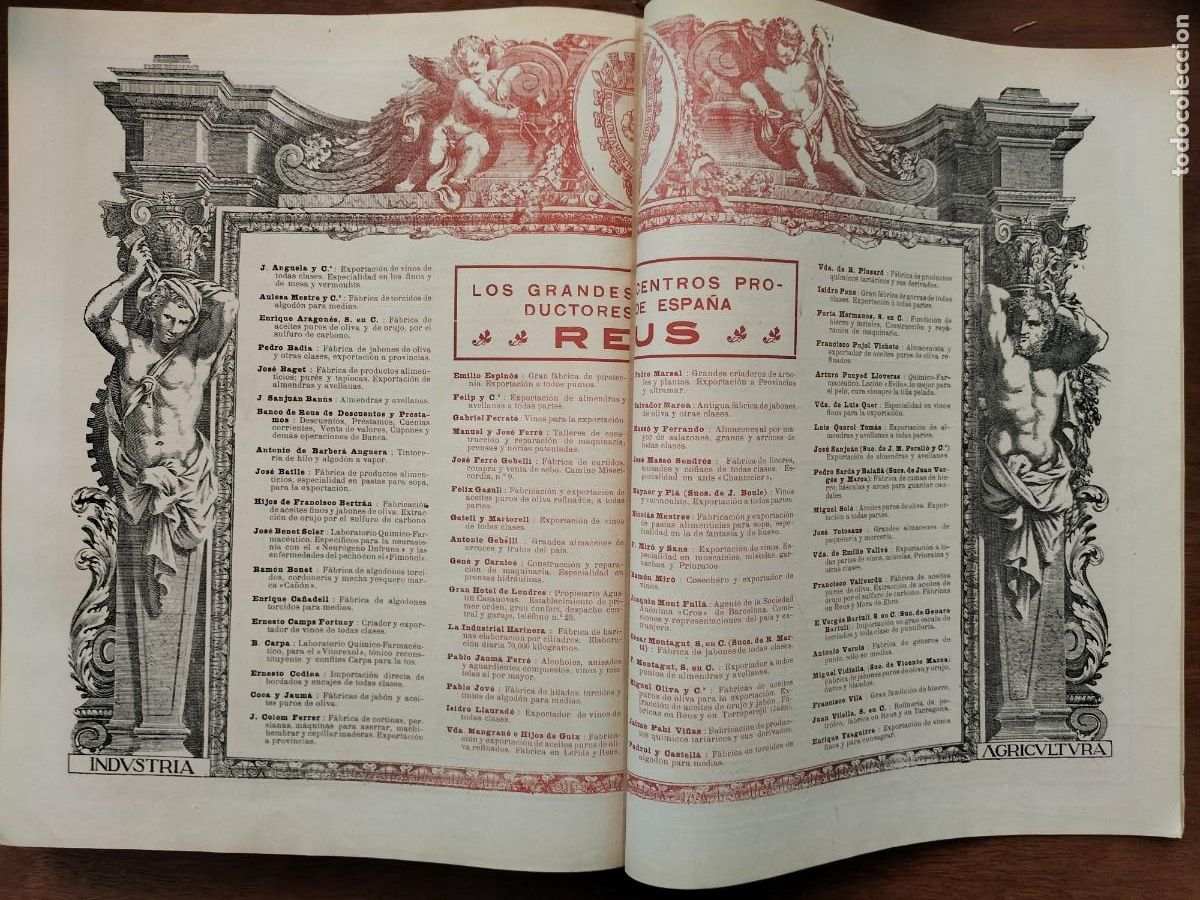 LOS GRANDES CENTROS PRO-
DUCTORES DE ESPAÑA
REUS
J. Anguela y C.ª : Exportación de vinos de
todas clases. Especialidad en los finos y
de mesa y vermouhts.
Aulesa Mestre y C.ª : Fábrica de torcidos de
algodón para medias.
Enrique Aragonés, S. en C. : Fábrica de
aceites puros de oliva y de orujo, por el
sulfuro de carbono.
Pedro Badía : Fábrica de jabones de oliva
y otras clases, exportación a provincias.
José Baget : Fábrica de productos alimen-
ticios; purés y tapiocas. Exportación de
almendras y avellanas.
J. Sanjuán Banús : Almendras y avellanas.
Banco de Reus de Descuentos y Présta-
mos : Descuentos, Préstamos, Cuentas
corrientes, Venta de valores, Cupones y
demás operaciones de Banca.
Antonio de Barberá Anguera : Tintore-
ría de hilo y algodón a vapor.
José Batlle : Fábrica de productos alimen-
ticios, especialidad en pastas para sopa,
para la exportación.
Hijos de Francisco Bertrán : Fabricación
de aceites finos y jabones de oliva. Extrac-
ción de orujo por el sulfuro de carbono
José Benet Soler : Laboratorio Químico-Far-
macéutico. Específicos para la neuraste-
nia con el «Neurógeno Dufrane» y las
enfermedades del pecho con el «Fimosol».
Ramón Bonet : Fábrica de algodones torci-
dos, cordonería y mecha yesquero mar-
ca «Cañón».
Enrique Cañadell : Fábrica de algodones
torcidos para medias.
Ernesto Camps Fortuny : Criador y expor-
tador de vinos de todas clases.
B. Carpa : Laboratorio Químico-Farmacéu-
tico, para el «Vitorexol», tónico recons-
tituyente y confites Carpa para la tos.
Ernesto Codina : Importación directa de
bordados y encajes de todas clases.
Coca y Jaumá : Fábricas de jabón y acei-
tes puros de oliva.
J. Colom Ferrer : Fábrica de cortinas, per-
sianas, máquinas para aserrar, machi-
hembrar y cepillar maderas. Exportación
a provincias.
Emilio Espinós : Gran fábrica de pirotec-
nia. Exportación a todos puntos.
Felip y C.ª : Exportación de almendras y
avellanas a todas partes.
Gabriel Ferraté : Vinos para la exportación.
Manuel y José Ferré : Talleres de cons-
trucción y reparación de maquinaria,
prensas y norias patentadas.
José Ferré Gebelli : Fábrica de curtidos,
compra y venta de sebo. Camino Miseri-
cordia, n.º 9.
Félix Gasull : Fabricación y exportación de
aceites puros de oliva refinados, a todas
partes.
Gatell y Martorell : Exportación de vinos
de todas clases.
Antonio Gebelli : Grandes almacenes de
arroces y frutos del país.
Gené y Carnicé : Construcción y repara-
ción de maquinaria. Especialidad en
prensas hidráulicas.
Gran Hotel de Londres : Propietario Agus-
tín Casanovas. Establecimiento de pri-
mer orden, gran confort, despacho cen-
tral y garaje, teléfono n.º 29.
La Industrial Harinera : Fábrica de hari-
nas elaboración por cilindros. Elabora-
ción diaria 70,000 kilogramos.
Pablo Jaumá Ferré : Alcoholes, anisados
y aguardientes compuestos, vinos y mis-
telas al por mayor.
Pablo Jové : Fábrica de hilados, torcidos y
tintes de algodón para medias.
Isidro Llauradó : Exportador de vinos de
todas clases.
Vda. Mangrané e Hijos de Guix : Fabrica-
ción y exportación de aceites puros de oli-
va refinados. Fábrica en Lérida y Reus
Pedro Marsal : Grandes criadores de árbo-
les y plantas. Exportación a Provincias
y ultramar.
Salvador Marca : Antigua fábrica de jabones
de oliva y otras clases.
Massó y Ferrando : Almacenes al por ma-
yor de salazones, granos y arroces de
todas clases.
José Massó Sendrós : Fábrica de licores,
anisados y coñacs de todas clases. Es-
pecialidad en anís «Chantecler».
Maynar y Plá (Sucs. de J. Boule) : Vinos
y vermouhts. Exportación a todas partes.
Nicolás Mestres : Fabricación y exportación
de pastas alimenticias para sopa, espe-
cialidad en la de fantasía y de huevo.
F. Miró y Sans : Exportación de vinos. Es-
pecialidad en moscateles, mistelas, gar-
nachas y Prioratos
Ramón Miró : Cosechero y exportador de
vinos.
Joaquín Mont Fullá : Agente de la Sociedad
Anónima «Cros» de Barcelona. Comi-
siones y representaciones del país y ex-
tranjero.
César Montagut, S. en C. (Sucs. de R. Mar-
tí) : Fábrica de jabones de todas clases.
F. Montagut, S. en C. : Exportador a todos
puntos de almendras y avellanas.
Miguel Oliva y C.ª : Fábricas de aceites
puros de oliva para la exportación. Ex-
tracción de aceites de orujo y jabón. Fá-
bricas en Reus y en Torreperojil (Jaén).
Jaime Pahí Viñas : Fabricación de produc-
tos químicos tartáricos y sus derivados.
Padrol y Castellá : Fábrica de torcidos de
algodón para medias.
Vda. de R. Pinsard : Fábrica de productos
químicos tartáricos y sus derivados.
Isidro Pons : Gran fábrica de gorras de todas
clases. Exportación a todas partes.
Porta Hermanos, S. en C. : Fundición de
hierro y metales. Construcción y repa-
ración de maquinaria.
Francisco Pujol Vicheto : Almacenista y
exportador de aceites puros de oliva re-
finados.
Arturo Punyed Lloveras : Químico-Far-
macéutico. Loción «Evile», la mejor para
el pelo, cura siempre la tiña pelada.
Vda. de Luis Quer : Especialidad en vinos
finos para la exportación.
Luis Querol Tomás : Exportación de al-
mendras y avellanas a todas partes.
José Sanjuán (Suc. de J. M. Peralló y C.ª)
Exportación de almendras y avellanas.
Pedro Sardá y Balañá (Sucs. de Juan Ver-
gés y Marca) : Fábrica de camas de hie-
rro, básculas y arcas para guardar cau-
dales.
Miguel Solé : Aceites puros de oliva. Expor-
tación a todas partes.
José Totosaus : Grandes almacenes de
paquetería y mercería.
Vda. de Emilio Vallvé : Exportación a to-
das partes de vinos, mistelas, Prioratos y
otras clases.
Francisco Vallverdú : Fábrica de aceites
puros de oliva. Extracción de aceites de
orujo por el sulfuro de carbono. Fábricas
en Reus y Mora de Ebro.
E. Vergés Bartulí, S. en C. (Suc. de Genaro
Bartulí) : Importación en gran escala de
bordados y toda clase de pañolería.
Antonio Vernis : Fábrica de géneros de
punto, sólo en medias.
Miguel Vidiella (Suc. de Vicente Marca) :
Fábrica de jabones puros de oliva y orujo,
duros y blandos.
Francisco Vilá : Gran fundición de hierro.
Juan Vilella, S. en C. : Refinería de pe-
tróleo, fábrica en Reus y en Tarragona.
Enrique Yzaguirre : Exportación de vinos
finos y para consagrar.
INDVSTRIA
AGRICVLTVRA
todocoleccion